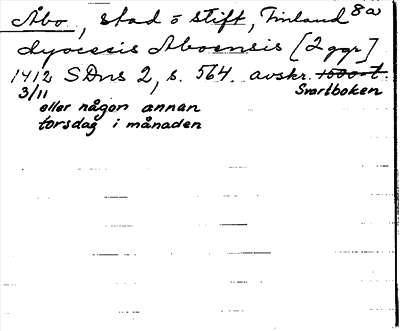 Åbo, stad o stift, Finland 8a
dyocesis Aboensis [2 ggr]
1412 SDns 2, s. 564. avskr. 1500-t.
3/11 Svartboken
eller någon annan
torsdag i månaden